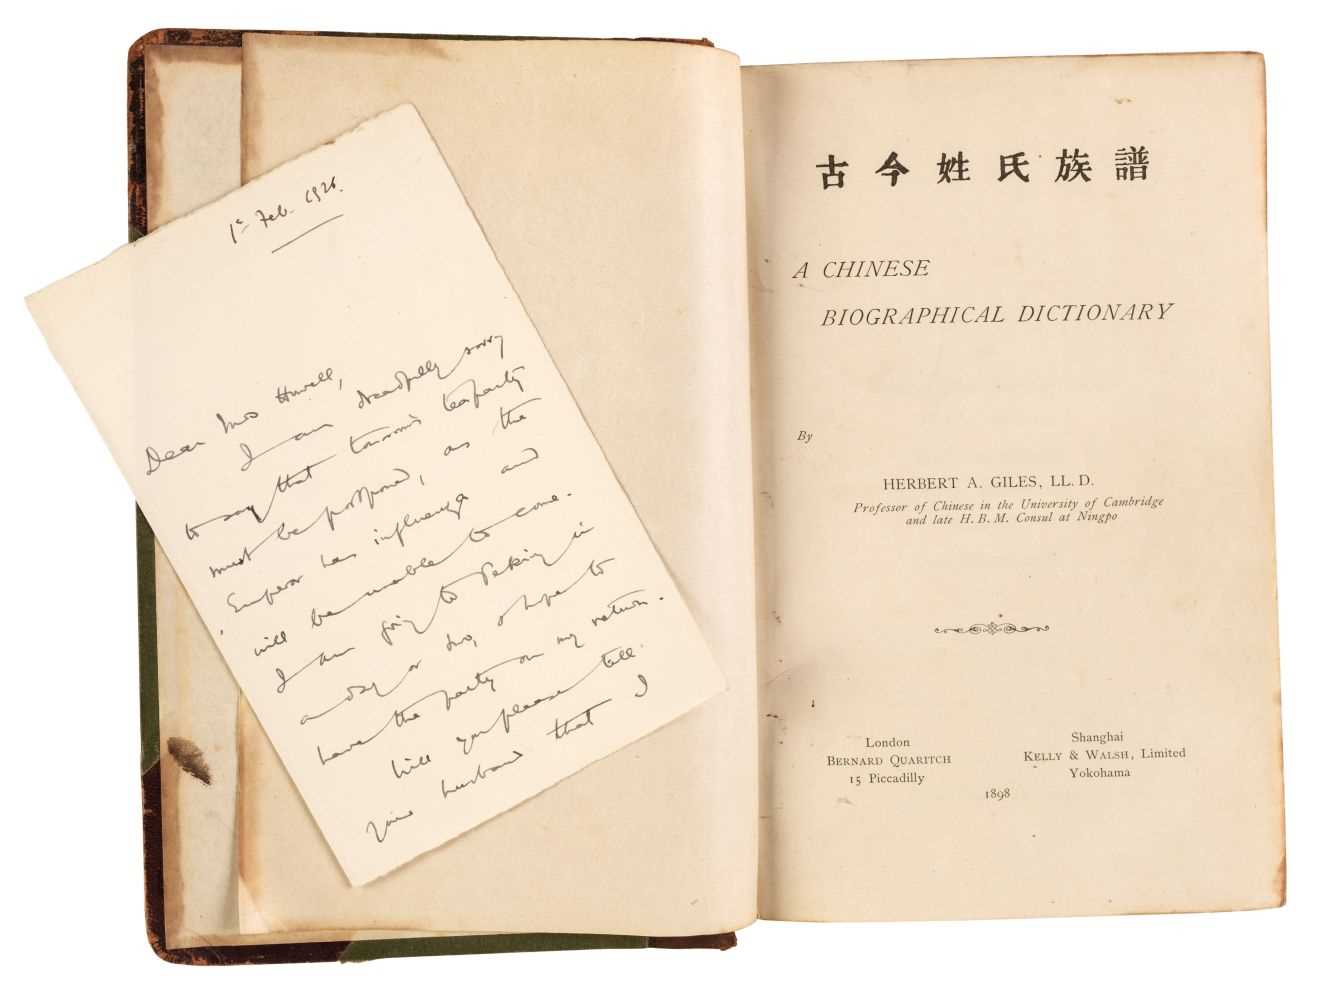 1st Feb. 1926.
Dear Mrs Howell,
I am dreadfully sorry
to say that tomorrow's teaparty
must be postponed, as the
Emperor has influenza and
will be unable to come.
I am going to Peking in
a day or two, & hope to
have the party on my return.
Will you please tell
your husband that I
古今姓氏族譜
A CHINESE
BIOGRAPHICAL DICTIONARY
By
HERBERT A. GILES, LL. D.
Professor of Chinese in the University of Cambridge
and late H. B. M. Consul at Ningpo
London
BERNARD QUARITCH
15 Piccadilly
Shanghai
KELLY & WALSH, Limited
Yokohama
1898